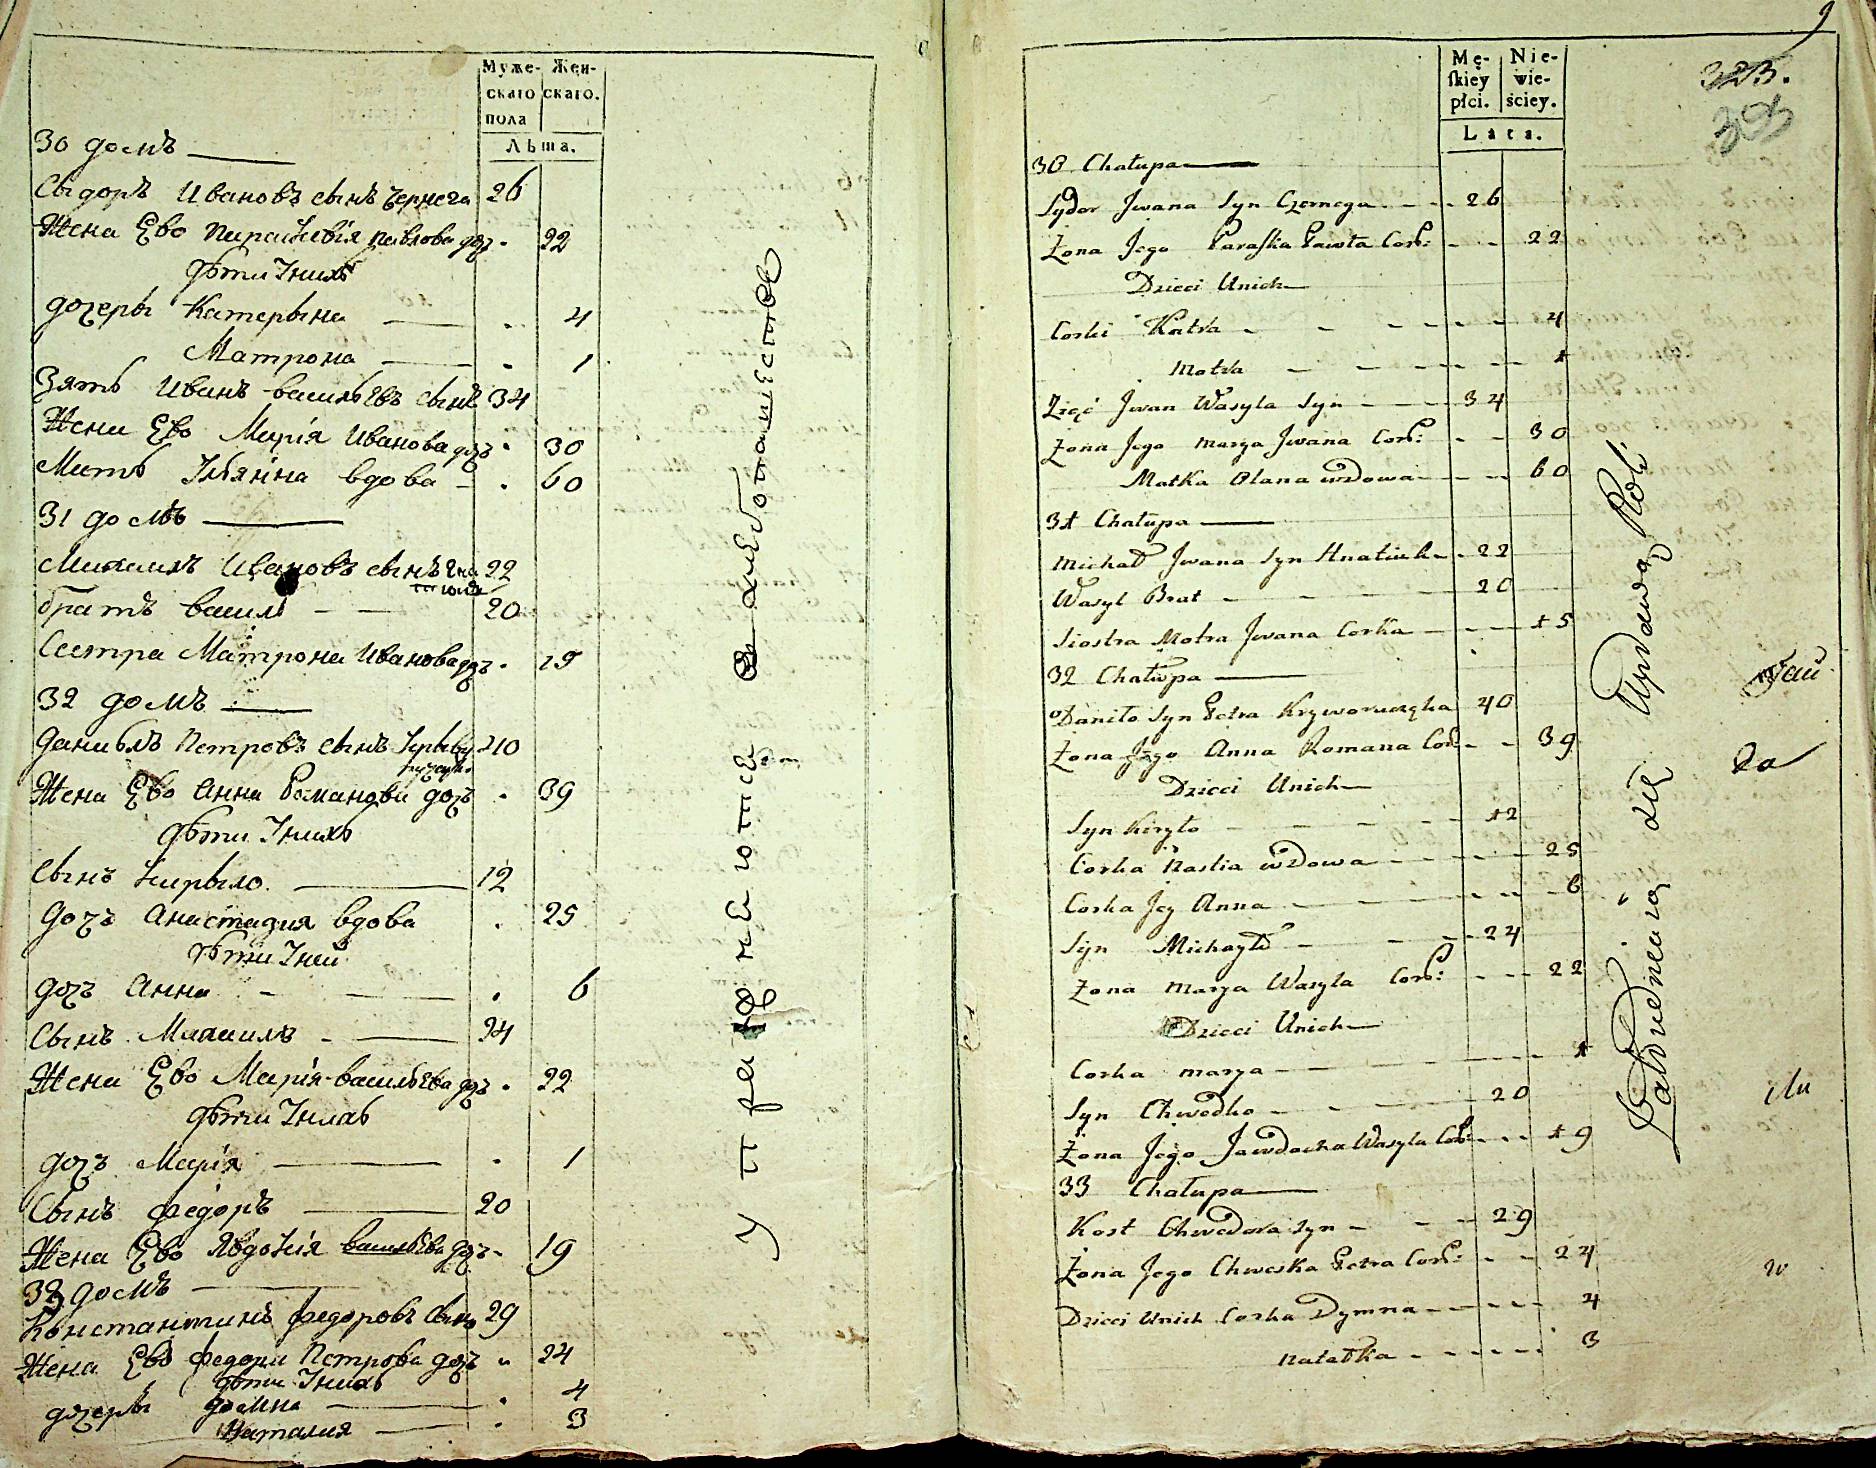 Муже-
скаго
пола
Жен-
скаго.
Лѣта.
30 домъ
Сыдоръ Ивановъ сынъ Чернега 26
Жена Ево Параскевія Павлова доч. 22
Дѣти Унихъ
дочеры Катерына 4
Матрона 1
Зять Иванъ васильевъ сынъ 34
Жена Ево Марія Иванова доч. 30
Мать Ульянна вдова 60
31 домъ
Михаилъ Ивановъ сынъ Гна 22
тюкъ
братъ василь 20
Сестра Матрона Иванова доч. 15
32 домъ
Данылъ Петровъ сынъ Крыву 40
Жена Ево Анна Романова дочъ 39
Дѣти Унихъ
Сынъ Кирыло 12
Дочъ Анастазия вдова 25
Дѣти Уней
дочъ Анна 6
Сынъ Михаилъ 24
Жена Ево Марія васильева доч. 22
Дѣти Унихъ
дочъ Марія 1
Сынъ Федоръ 20
Жена Ево Явдокія васильева доч. 19
33 домъ
Константинъ Федоровъ сынъ 29
Жена Ево Федора Петрова дочъ 24
Дѣти Унихъ
дочеры Домна 4
Наталия 3
упражняются въ хлебопашестве
9
323.
Mę-
skiey
płci.
Nie-
wie-
ściey.
Lata.
30 Chałupa
Sydor Jwana Syn Czernega 26
Żona Jego Paraska Pawła Cor: 22
Dzieci Unich
Corki Katra 4
Motra 1
Zięć Jwan Wasyla Syn 34
Żona Jego Marya Jwana Cor: 30
Matka Olana wdowa 60
31 Chałupa
Michał Jwana Syn Hnatiuk 22
Wasyl Brat 20
Siostra Motra Jwana Corka 15
32 Chałupa
Daniło Syn Petra Kryworuczka 40
Żona Jego Anna Romana Cor: 39
Dzieci Unich
Syn Kiryło 12
Corka Nastia wdowa 25
Corka Jey Anna 6
Syn Michayło 24
Żona Marya Wasyla Cor: 22
Dzieci Unich
Corka Marya 1
Syn Chwedko 20
Żona Jego Jawdocha Wasyla Cor: 19
33 Chałupa
Kost Chwedora Syn 29
Żona Jego Chweska Petra Cor: 24
Dzieci Unich Corka Dymna 4
Natałka 3
Zatrudnieia się Uprawą Roli